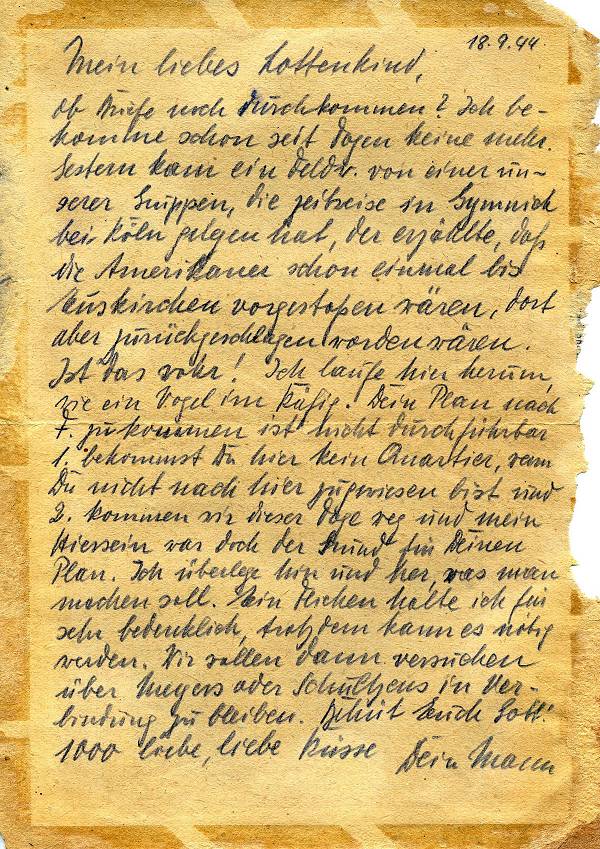 18.9.44
Mein liebes Lottenkind,
ob Briefe noch durchkommen? Ich be-
komme schon seit Tagen keine mehr.
Gestern kam ein Feldw. von einer un-
serer Gruppen, die zeitweise in Gymnich
bei Köln gelegen hat, der erzählte, daß
die Amerikaner schon einmal bis
Euskirchen vorgestoßen wären, dort
aber zurückgeschlagen worden wären.
Ist das wahr! Ich laufe hier herum
wie ein Vogel im Käfig. Dein Plan nach
T. zu kommen ist nicht durchführbar
1. bekommst Du hier kein Quartier, wenn
Du nicht nach hier zugewiesen bist und
2. kommen wir dieser Tage weg und mein
Hiersein war doch der Grund für Deinen
Plan. Ich überlege hin und her, was man
machen soll. Ein Fliehen halte ich für
sehr bedenklich, trotzdem kann es nötig
werden. Wir wollen dann versuchen
über Meyers oder Schultzens in Ver-
bindung zu bleiben. Behüt Euch Gott!
1000 liebe, liebe Küsse Dein Mann